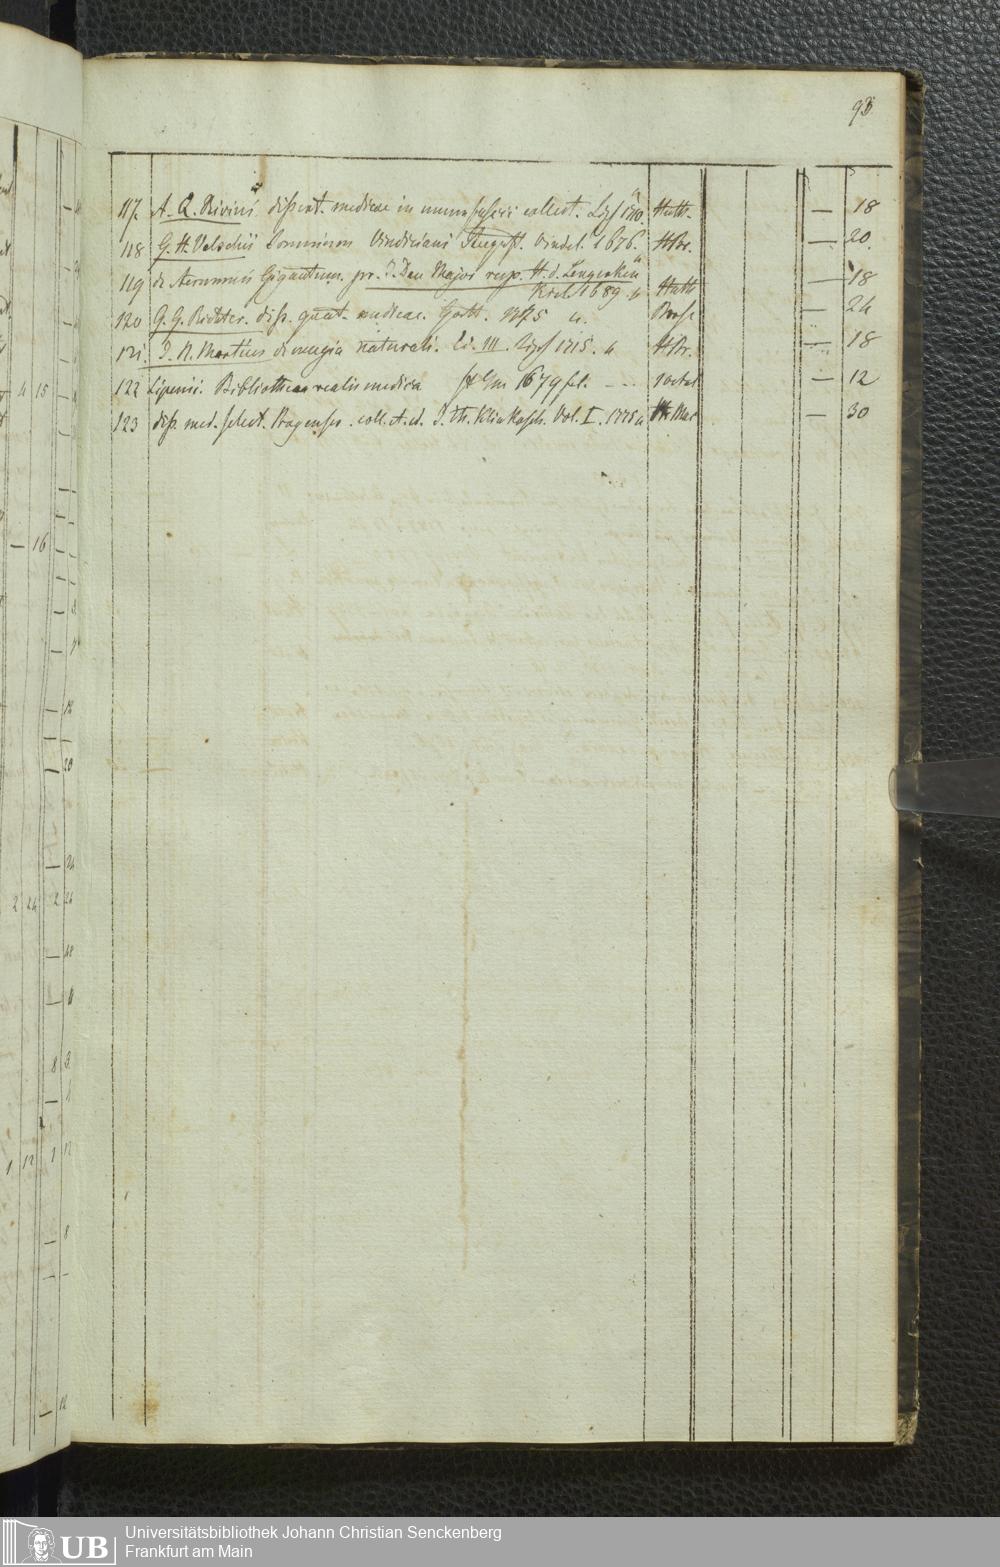 93
117. A. Q. Rivini dissert. medicae in unum collect. Lips 1710. — 18
118 G. H. Velschii Somnium Vindiciani August. Vindel. 1676. HBr. — 20.
119 de Aerumnis Gigantum. pr. J. Dan Major resp. H. d. Lengerken
Kiel 1689. 4 Huth — 18
120 G. G. Richter. diss. quat. medicae. Gott. 1775 4. — 24
121. J. N. Martius de magia naturali. Ed. III. Lips 1715. 4 HBr. — 18
122 Lipenii. Bibliotheca realis medica 1679 fol. — 12
123 diss. med. select. Pragenses. coll. et ed. J. Th. Klinkosch. Vol. I. 1775 4 — 30
4 15
— 16
2 24 2
1 12 1 12
UB
Universitätsbibliothek Johann Christian Senckenberg
Frankfurt am Main